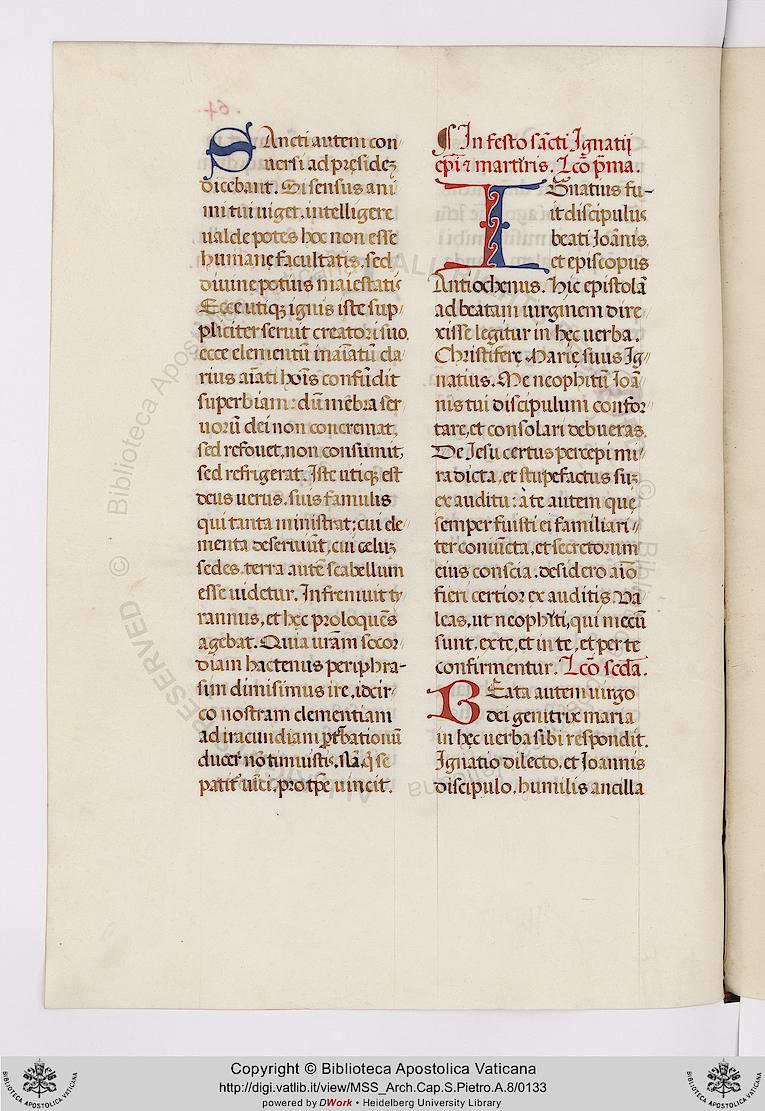 .64.
SAncti autem con
uersi ad pręsidez
dicebant. Si sensus ani
mi tui uiget, intelligere
ualde potes hoc non esse
humanę facultatis, sed
diuinę potius maiestatis
Ecce utiq; ignis iste sup
pliciter seruit creatori suo.
ecce elementū inaīatū cla
rius aīati hoīs confūdit
superbiam: dū mēbra ser
uorū dei non concremat,
sed refouet, non consumit,
sed refrigerat. Iste utiq; est
deus uerus, suis famulis
qui tanta ministrat; cui ele
menta deseruiūt, cui celuz
sedes, terra autē scabellum
esse uidetur. Infremuit ty
rannus, et hęc proloquēs
agebat. Quia ur̄am socor
diam hactenus periphra-
sim dimisimus ire, idcir
co nostram clementiam
ad iracundiam
ducer̄ nō timuistis.
uīci, pro tpē uincit.
In festo sācti Ignatij
ep̄i ⁊ martiris. Lcō pma.
IGnatius fu-
it discipulus
beati Ioānis,
et episcopus
Antiochenus. Hic epistolā
ad beatam uirginem dire
xisse legitur in hęc uerba.
Christiferę Marię suus Ig
natius. Me neophitū Ioā
nis tui discipulum confor
tare, et consolari debueras.
De Iesu certus percepi mi
ra dicta, et stupefactus suz
ex auditu: à te autem quę
semper fuisti ei familiari
ter coniūcta, et secretorum
eius conscia, desidero aīo
fieri certior ex auditis. Va
leas, ut neophiti, qui mecū
sunt, ex te, et in te, et per te
confirmentur. Lcō scda.
BEata autem uirgo
dei genitrix maria
in hęc uerba sibi respondit.
Ignatio dilecto, et Ioannis
discipulo, humilis ancilla
Copyright © Biblioteca Apostolica Vaticana
http://digi.vatlib.it/view/MSS_Arch.Cap.S.Pietro.A.8/0133
powered by DWork • Heidelberg University Library